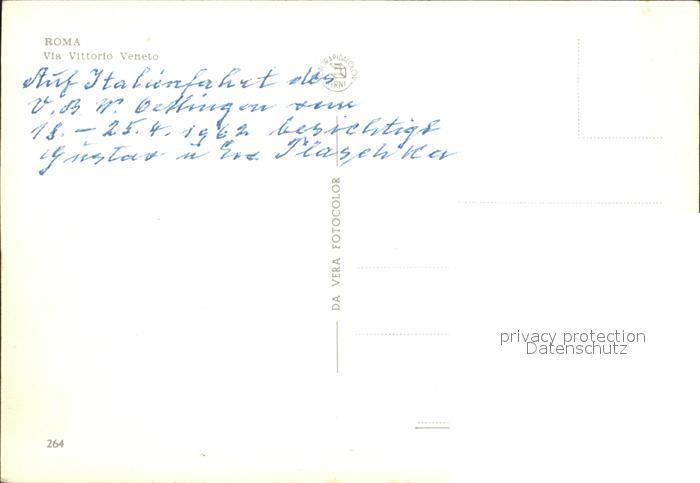 ROMA
Via Vittorio Veneto
Auf Italienfahrt des
V. B. W. Oettingen vom
18. – 25. 4. 1962 besichtigt
Gustav u Eva Plaschka
DA VERA FOTOCOLOR
privacy protection
Datenschutz
264